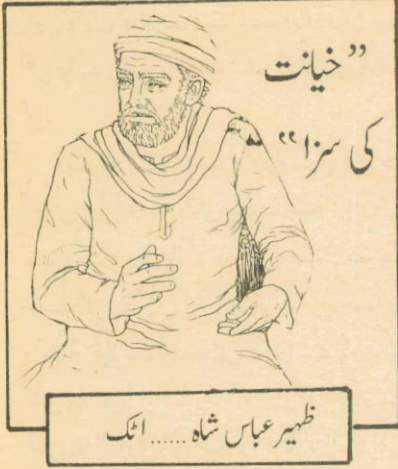 ”خیانت
کی سزا“
ظہیر عباس شاہ ...... اٹک